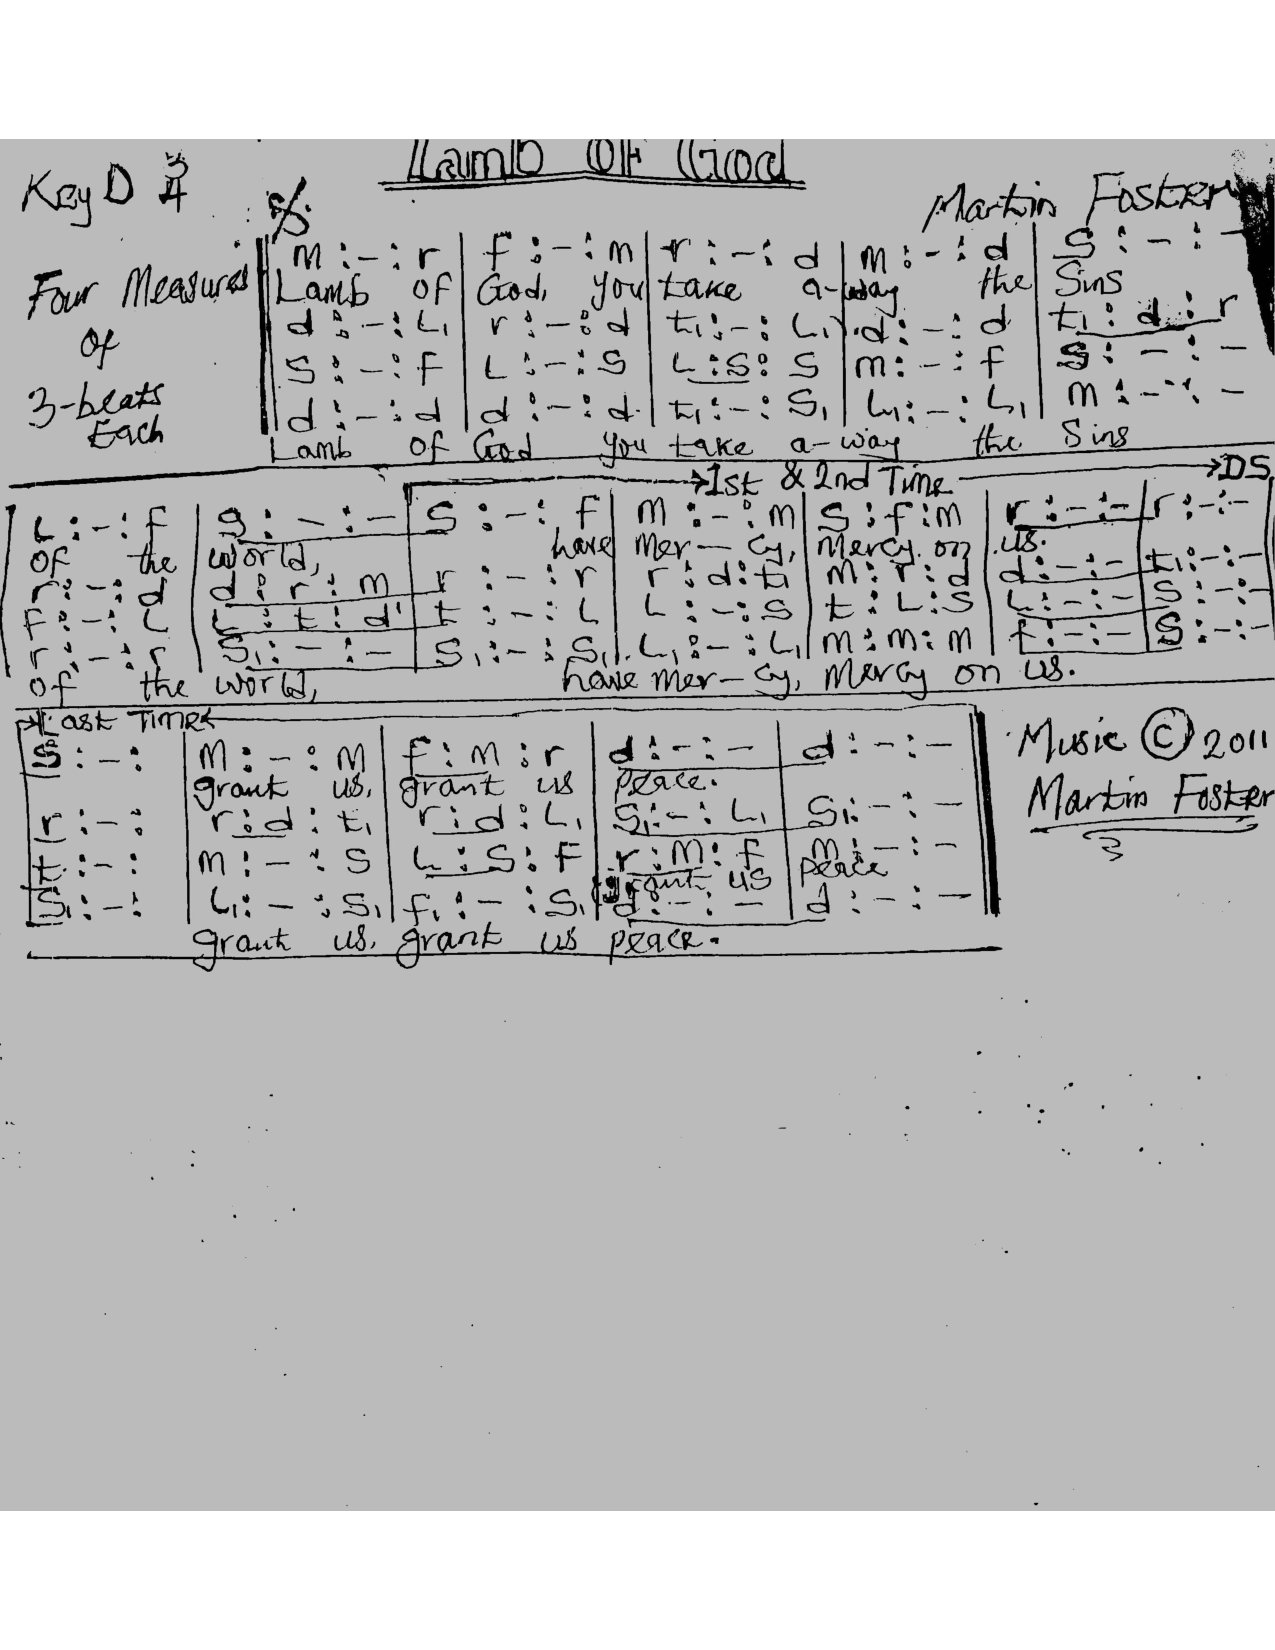 Lamb Of God
Key D 3/4
Martin Foster
Four Measures Of 3-beats Each
m : - : r | f : - : m | r : - : d | m : - : d | S : - : -
Lamb of God, you take a-way the Sins
d : - : L₁ | r : - : d | t₁ : - : L₁ | d : - : d | t₁ : d : r
S : - : F | L : - : S | L : S : S | m : - : f | S : - : -
d : - : d | d : - : d | t₁ : - : S₁ | L₁ : - : L₁ | m : - : -
Lamb of God you take a-way the Sins
1st & 2nd Time DS
L : - : f | S : - : - | S : - : f | m : - : m | S : f : m | r : - : - | r : - : -
of the world, have Mer - cy, Mercy on us.
r : - : d | d : r : m | r : - : r | r : d : t₁ | m : r : d | d : - : - | t₁ : - : -
F : - : L | L : t : d' | t : - : L | L : - : S | t : L : S | L : - : - | S : - : -
r : - : r | S₁ : - : - | S₁ : - : S₁ | L₁ : - : L₁ | m : m : m | f : - : - | S : - : -
of the world, have mer - cy, Mercy on us.
Last Time
S : - : | M : - : M | f : M : r | d : - : - | d : - : -
grant us, grant us peace.
r : - : | r : d : t₁ | r : d : L₁ | S₁ : - : L₁ | S₁ : - : -
t : - : | m : - : S | L : S : F | r : M : f | m : - : -
grant us peace
S₁ : - : | L₁ : - : S₁ | f₁ : - : S₁ | d : - : - | d : - : -
grant us, grant us peace.
Music © 2011
Martin Foster